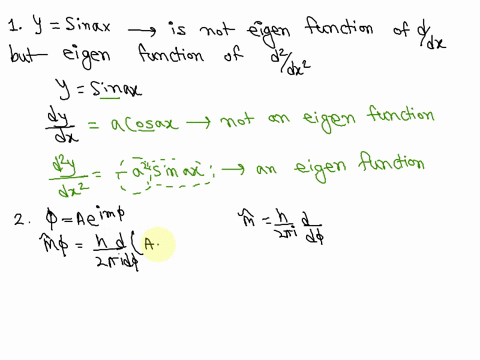 1. y = Sinax → is not eigen function of d/dx
but eigen function of d²/dx²
y = sinax
dy/dx = acosax → not an eigen function
d²y/dx² = -a² sinax → an eigen function
2. ϕ = Ae^{imϕ}
m̂ = h/2πi d/dϕ
m̂ϕ = h/2πi d/dϕ (A.